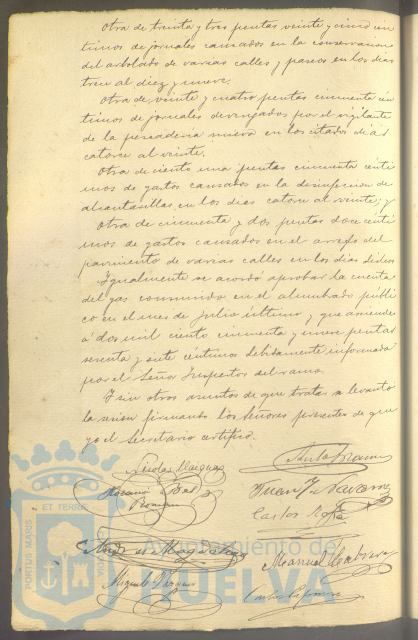 Otra de treinta y tres pesetas veinte y cinco cén
timos de jornales causados en la conservacion
del arbolado de varias calles y paseos en los dias
trece al diez y nueve.
Otra de veinte y cuatro pesetas cincuenta cén
timos de jornales devengados por el vigilante
de la pescaderia nueva en los citados dias
catorce al veinte.
Otra de ciento una pesetas cincuenta centi
mos de gastos causados en la desinfeccion de
alcantarillas en los dias catorce al veinte; y
Otra de cincuenta y dos pesetas doce centi
mos de gastos causados en el arreglo del
pavimento de varias calles en los dias
Igualmente se acordó aprobar la cuenta
del gas consumido en el alumbrado públi
co en el mes de Julio último y que asciende
á dos mil ciento cincuenta y nueve pesetas
sesenta y siete centimos debidamente informada
por el Señor Inspector del ramo.
Y sin otros asuntos de que tratar se levantó
la sesion firmando los Señores presentes de que
yo el Secretario certifico.
Nicolas Vazquez
Juan J. Navarro
Carlos
Manuel
Miguel
Carlos
PORTUS MARIS ET TERRAE
Ayuntamiento de
HUELVA